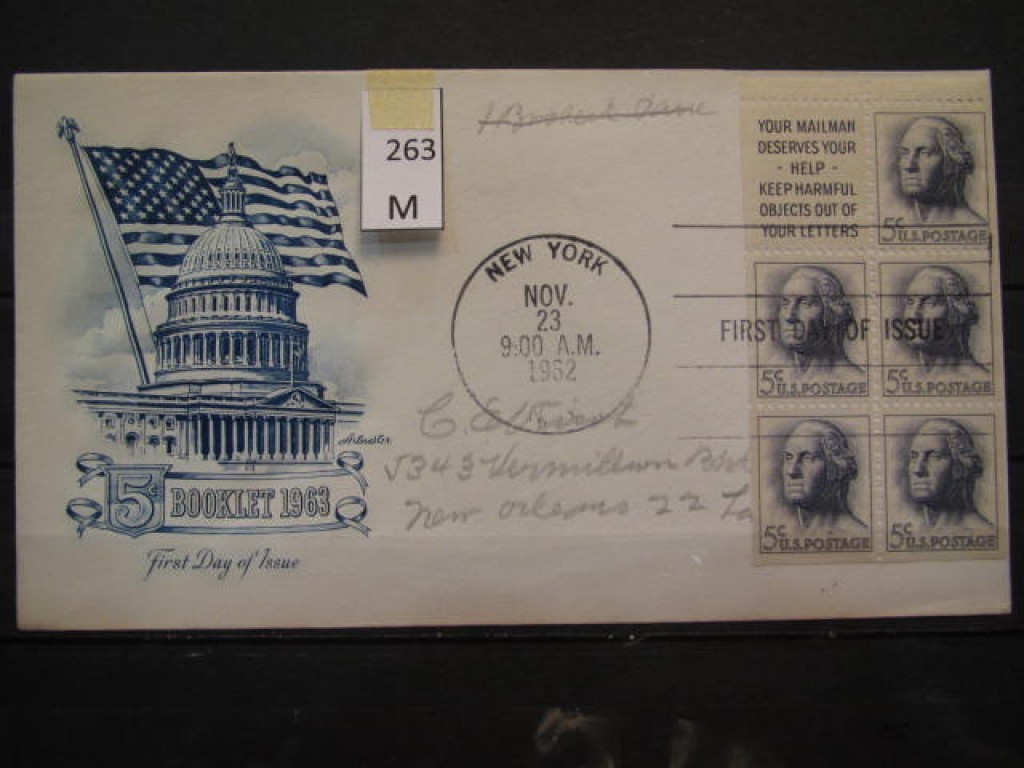 263
M
YOUR MAILMAN
DESERVES YOUR
- HELP -
KEEP HARMFUL
OBJECTS OUT OF
YOUR LETTERS
5¢ U.S. POSTAGE
NEW YORK
NOV.
23
9:00 A.M.
1962
FIRST DAY OF ISSUE
5¢ U.S. POSTAGE
5¢ U.S. POSTAGE
5¢ U.S. POSTAGE
5¢ U.S. POSTAGE
5343 Vermillion
New Orleans 22 La
Artmaster
5¢ BOOKLET 1963
First Day of Issue